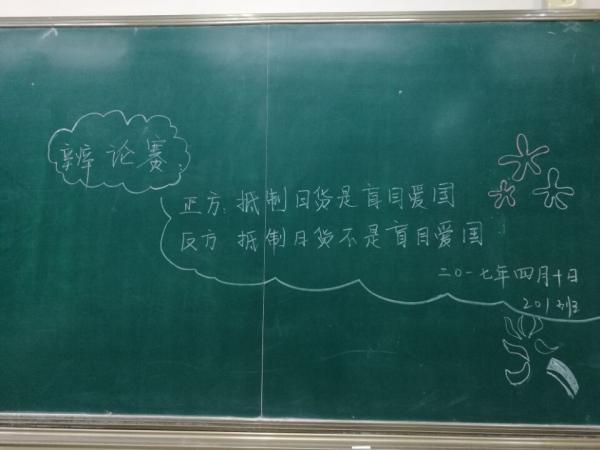 辩论赛
正方:抵制日货是盲目爱国
反方 抵制日货不是盲目爱国
二〇一七年四月十日
201班